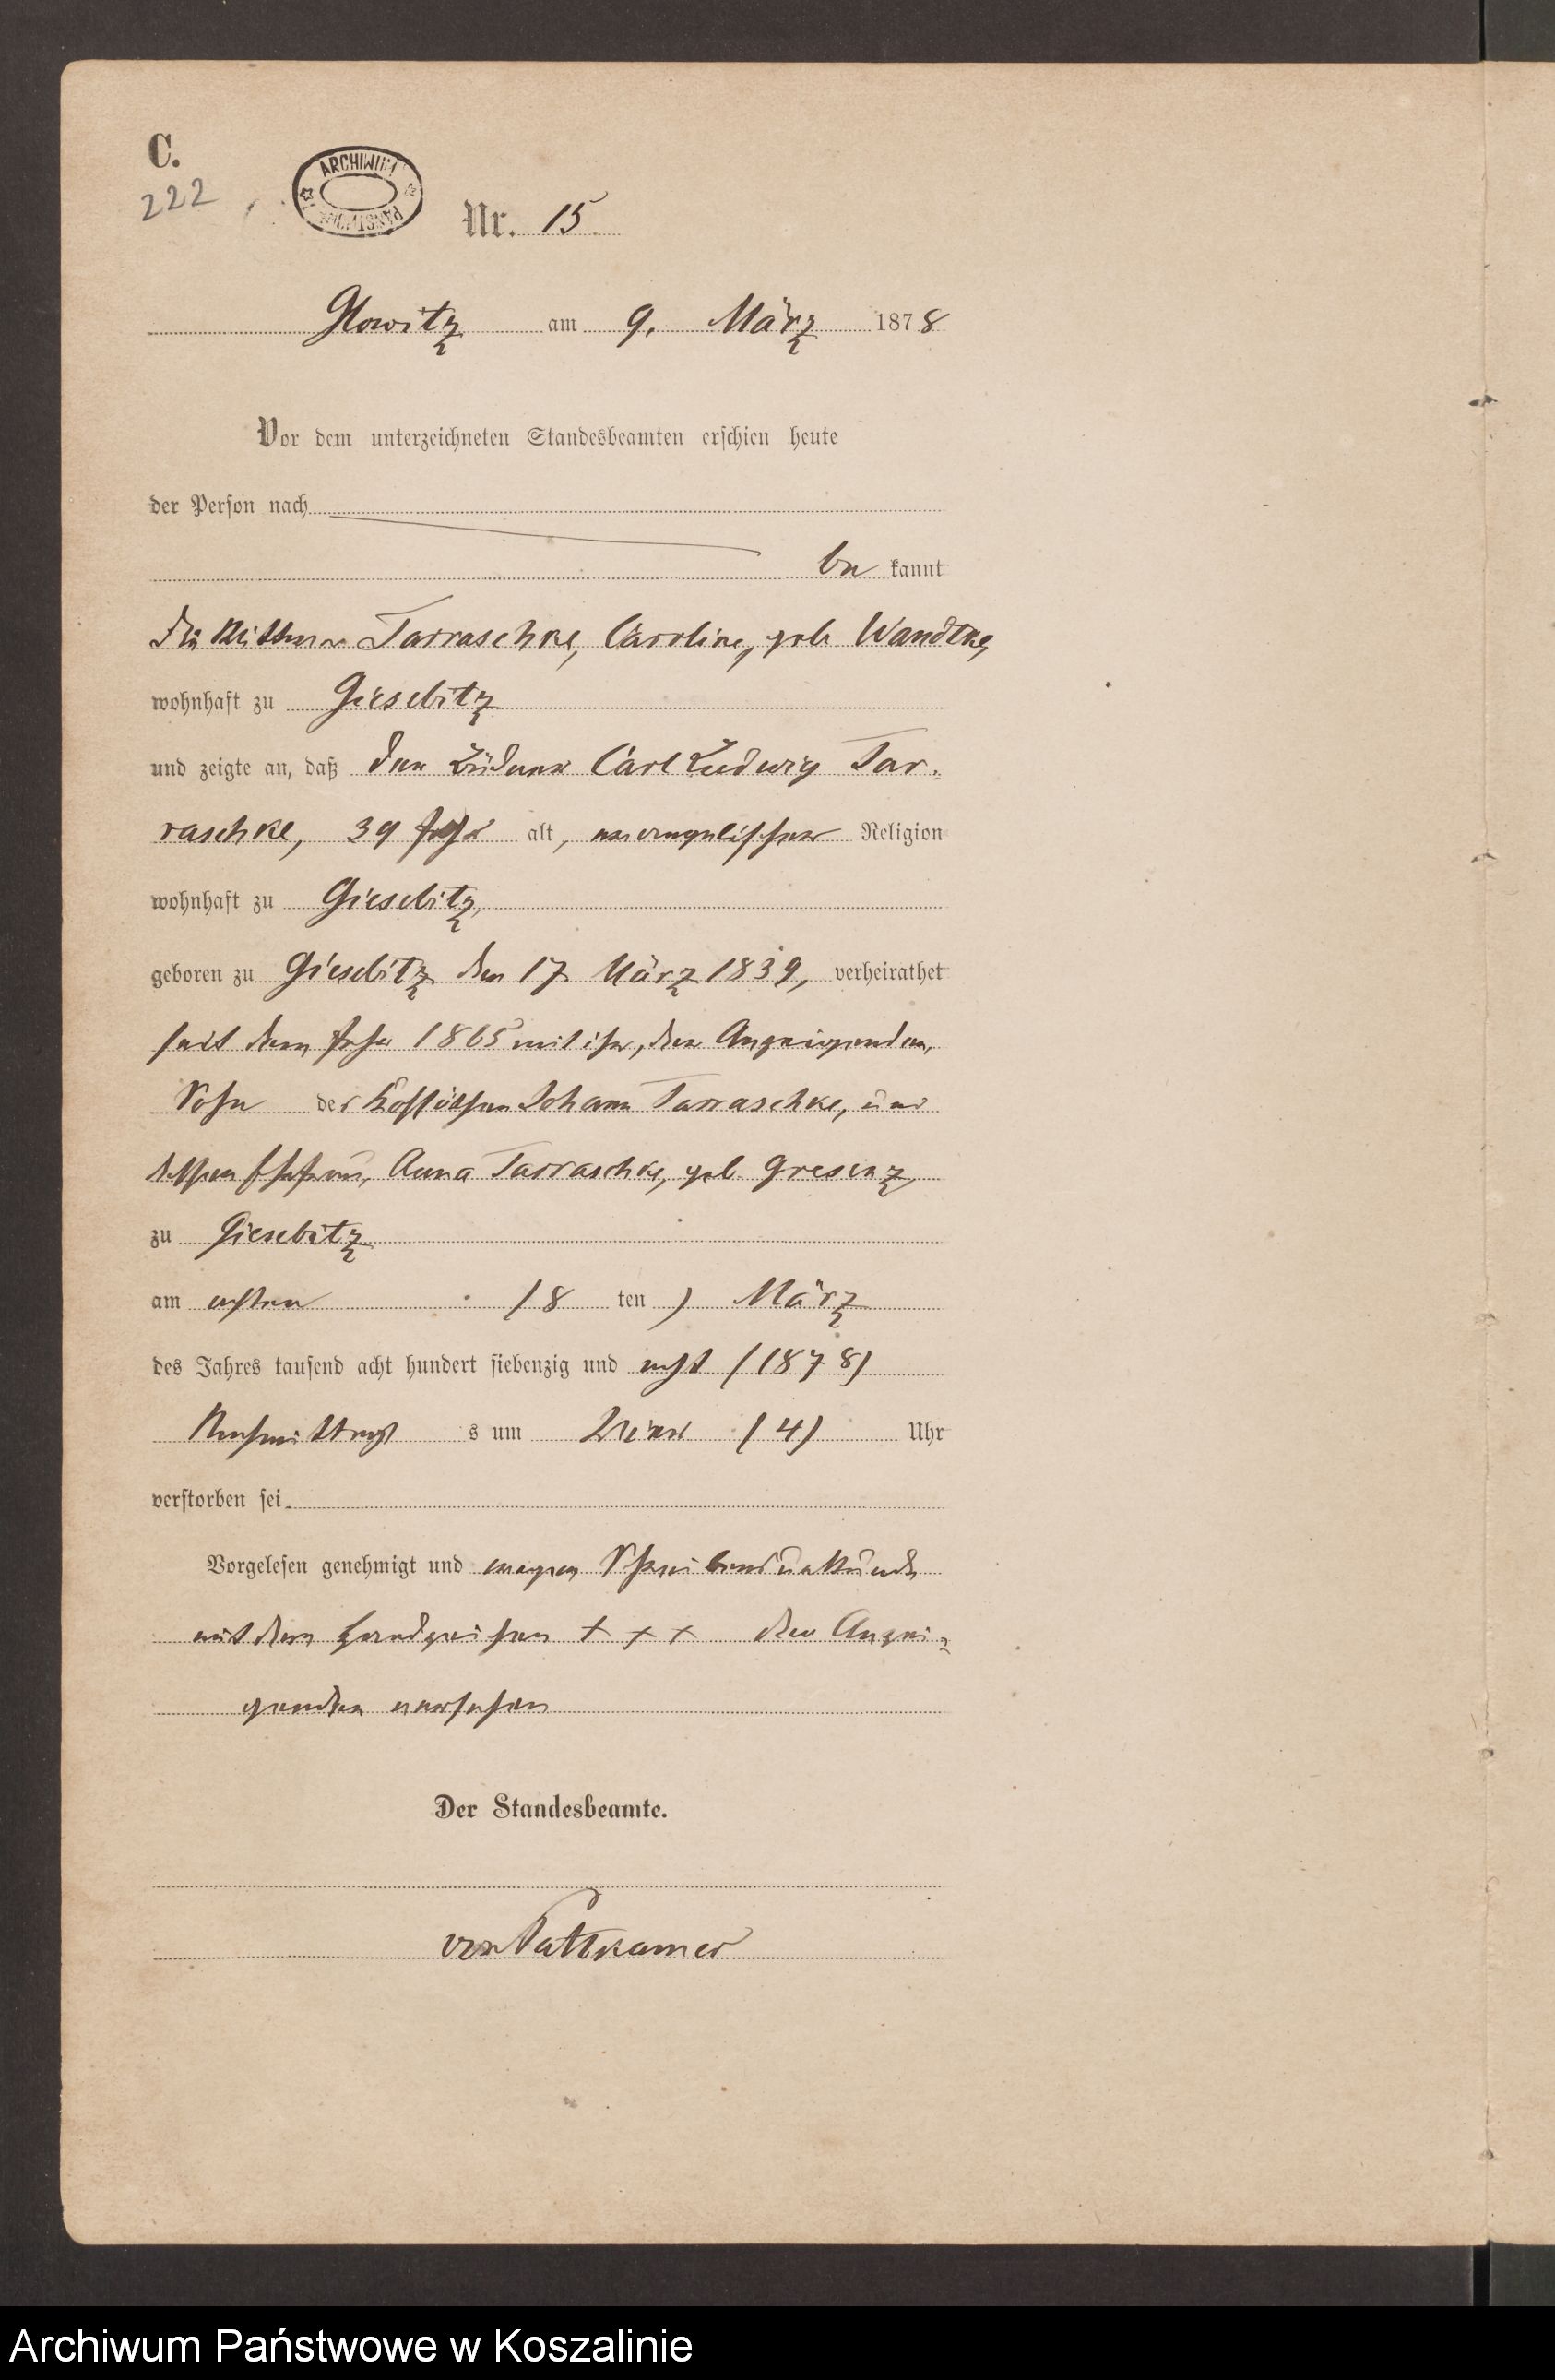 C.
222
ARCHIWUM
PAŃSTWOWE
Nr. 15
Glowitz am 9. März 1878
Vor dem unterzeichneten Standesbeamten erschien heute
der Person nach
be kannt
die Tarraschke, Caroline, geb Wandtke,
wohnhaft zu Giesebitz
und zeigte an, daß der Büdner Carl Ludwig Tar-
raschke, 39 Jahr alt, evangelischer Religion
wohnhaft zu Giesebitz,
geboren zu Giesebitz den 17 März 1839, verheirathet
seit dem Jahre 1865 mit ihr, der Anzeigenden,
Sohn des Kossäthen Johann Tarraschke, und
dessen Ehefrau, Anna Tarraschke, geb. Gresenz,
zu Giesebitz
am achten (8 ten) März
des Jahres tausend acht hundert siebenzig und acht (1878)
Nachmittags um Vier (4) Uhr
verstorben sei.
Vorgelesen genehmigt und wegen Schreibensunkunde
mit dem Handzeichen + + + der Anzei-
genden versehen
Der Standesbeamte.
von Puttkamer
Archiwum Państwowe w Koszalinie